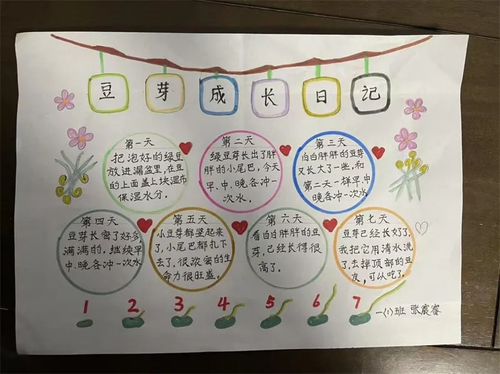 豆芽成长日记
第一天
把泡好的绿豆
放进漏盆里,在豆
的上面盖上块湿布
保湿水分。
第二天
绿豆芽长出了胖
胖的小尾巴,今天
早、中、晚各冲一
次水。
第三天
白白胖胖的豆芽
又长大了一些,和
第二天一样早中
晚各冲一次水
第四天
豆芽长密了好多
满满的,继续早
中、晚各冲一次水
第五天
小豆芽都竖起来
了,小尾巴都扎下
去了,很浓密的生
命力很旺盛。
第六天
看白白胖胖的豆
芽,已经长得很
高了。
第七天
豆芽已经长大了,
我把它用清水洗
了,去掉顶部的豆
皮,可以吃了。
1 2 3 4 5 6 7
一(1)班 张宸睿